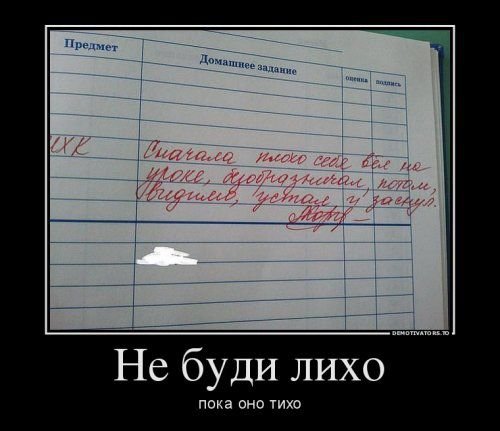 Предмет
Домашнее задание
оценка
подпись
МХК
Сначала плохо себя вел на
уроке, безобразничал, потом,
видимо, устал и заснул.
DEMOTIVATORS.TO
Не буди лихо
пока оно тихо